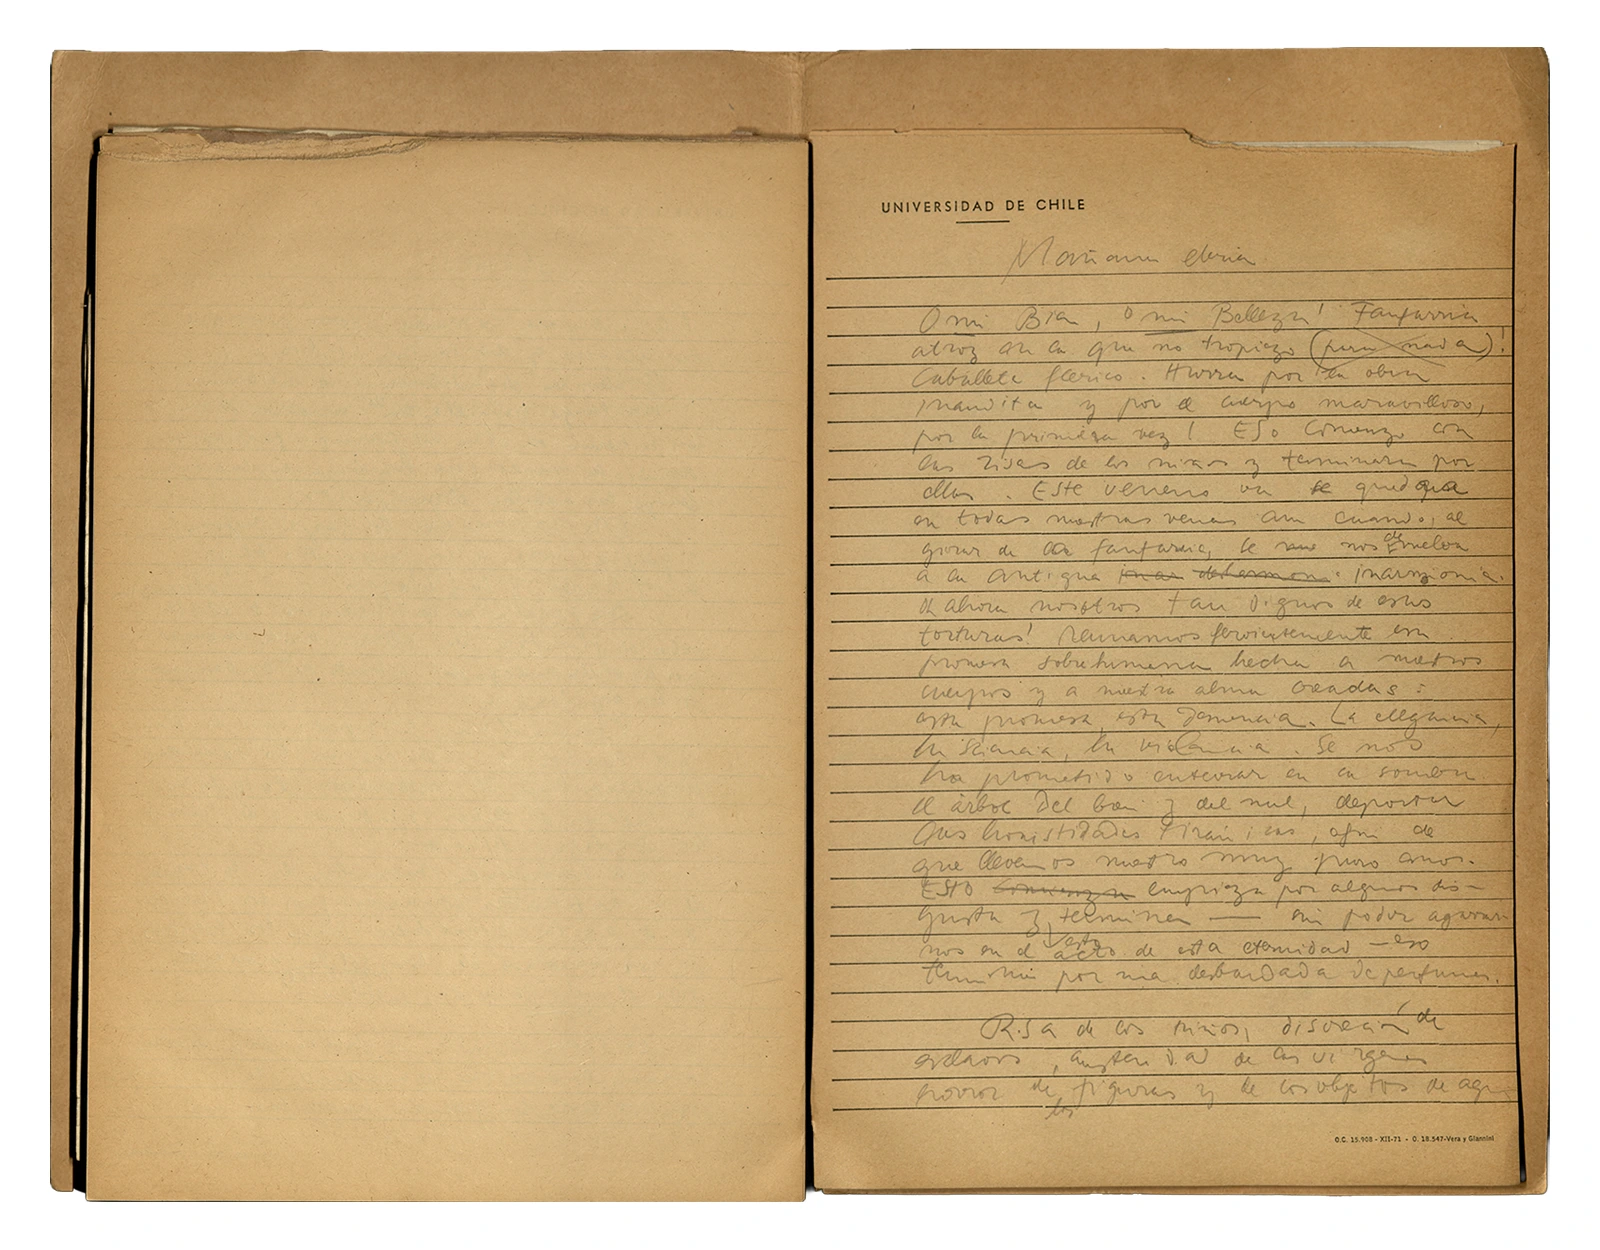 UNIVERSIDAD DE CHILE
Mañana ebria
O mi Bien, O mi Belleza! Fanfarria
atroz en la que no tropiezo (para nada)!
Caballete feérico. Hurra por la obra
inaudita y por el cuerpo maravilloso,
por la primera vez! Eso comenzó con
las risas de los niños y terminará por
ellas. Este veneno va se quedará
en todas nuestras venas aun cuando, al
girar de la fanfarria, se nos devuelva
a la antigua inarmonía.
O ahora nosotros tan dignos de estas
torturas! Reunamos fervientemente esa
promesa sobrehumana hecha a nuestros
cuerpos y a nuestra alma creadas:
esta promesa, esta demencia. La elegancia,
la sciencia, la violencia. Se nos
ha prometido enterrar en la sombra
el árbol del bien y del mal, deportar
las honestidades tiránicas, afin de
que llevemos nuestro muy puro amor.
Esto comienza empieza por algunos dis-
gustos y termina — sin poder agarrar
nos en el acto de esta eternidad — eso
termina por una desbandada de perfumes.
Risa de los niños, discreción de
esclavos, austeridad de las vírgenes
horror de figuras y de los objetos de aquí
los
O.C. 15.908 - XII-71 - O. 18.547-Vera y Giannini